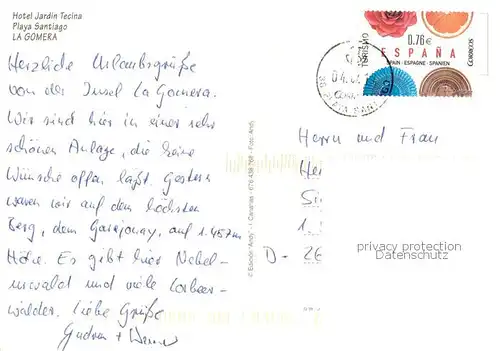 Hotel Jardin Tecina
Playa Santiago
LA GOMERA
Herzliche Urlaubsgrüße
von der Insel La Gomera.
Wir sind hier in einer sehr
schönen Anlage, die keine
Wünsche offen läßt. Gestern
waren wir auf dem höchsten
Berg, dem Garajonay, auf 1.457m
Höhe. Es gibt hier Nebel-
urwald und viele Lorbeer-
wälder. Liebe Grüße
Gudrun +
TURISMO
0,76€
ESPAÑA
SPAIN - ESPAGNE - SPANIEN
CORREOS
Herrn und Frau
D - 26
privacy protection
Datenschutz